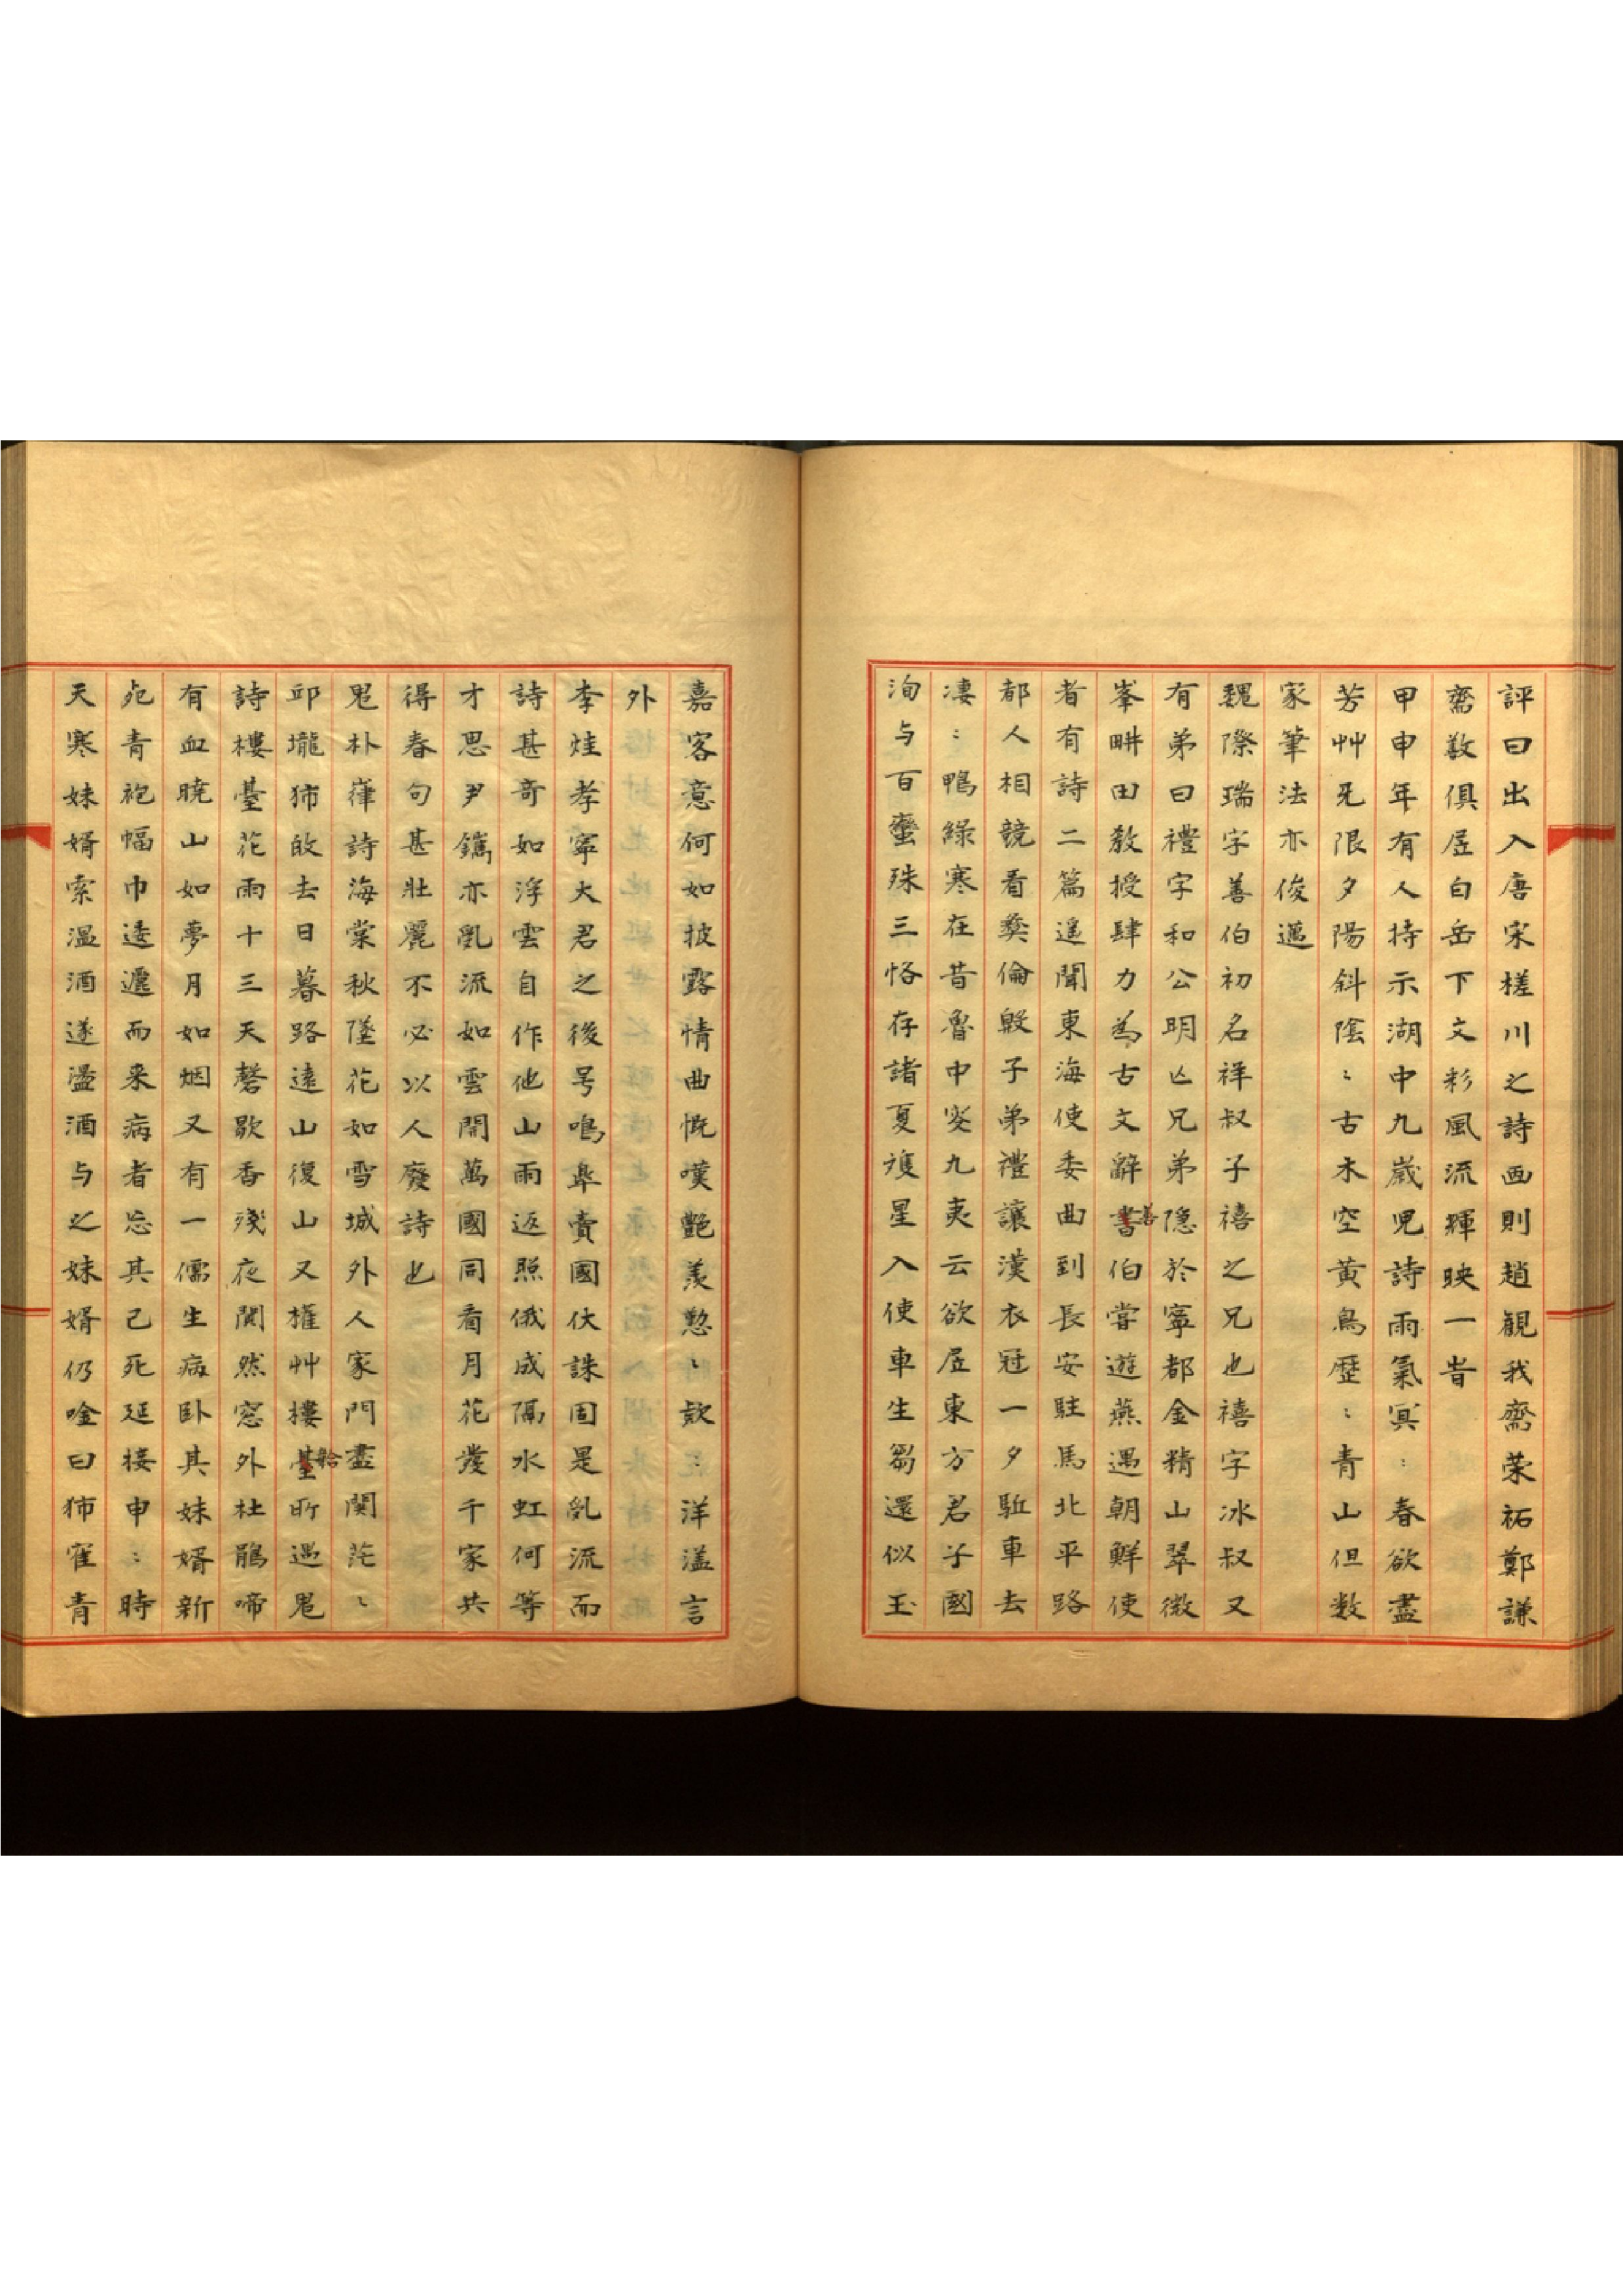 評曰出入唐宋槎川之詩画則趙觀我齋荣祏鄭謙
齋敾俱居白岳下文彩風流輝映一旹
甲申年有人持示湖中九歲児詩雨氣冥〻春欲盡
芳艸旡限夕陽斜陰〻古木空黄鳥歴〻青山但数
家筆法亦俊邁
魏際瑞字善伯初名祥叔子禧之兄也禧字冰叔又
有弟曰禮字和公明亾兄弟隠於寧都金精山翠微
峯畊田教授肆力為古文辭書善伯嘗遊燕遇朝鮮使
者有詩二篇遥聞東海使委曲到長安駐馬北平路
都人相競看彜倫殷子弟禮讓漢衣冠一夕駈車去
凄〻鴨綠寒在昔魯中叜九夷云欲居東方君子國
洵与百蠻殊三恪存諸夏𤣥星入使車生芻還似玉
嘉客意何如披露情曲慨嘆艶羨懃〻欵〻洋溢言
外
李烓孝寧大君之後号鳴皐賣國伏誅固是乱流而
詩甚奇如浮雲自作他山雨返照俄成隔水虹何等
才思尹鑴亦亂流如雲開萬國同看月花發千家共
得春句甚壯麗不必以人廢詩也
鬼朴嵂詩海棠秋墜花如雪城外人家門盡関茫〻
邱壠獨啟去日暮路遠山復山又權韐艸樓臺所遇鬼
詩樓臺花雨十三天磬歇香殘夜闃然窓外杜鵑啼
有血曉山如夢月如烟又有一儒生病卧其妹婿新
死青袍幅巾逶邐而来病者忘其已死延接申〻時
天寒妹婿索温酒遂盪酒与之妹婿仍唫曰獨寉青